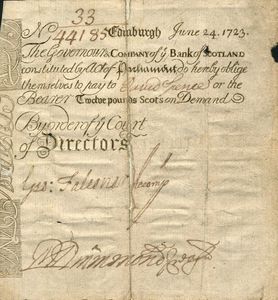 33
No 44185 Edinburgh June 24. 1723.
The Governour & COMPANY of ye Bank of SCOTLAND
constituted by Act of Parliament do hereby oblige
themselves to pay to David Spence or the
Bearer Twelve pounds Scots on Demand
By order of ye Court
of Directors
Geo: Falconer
Drummond